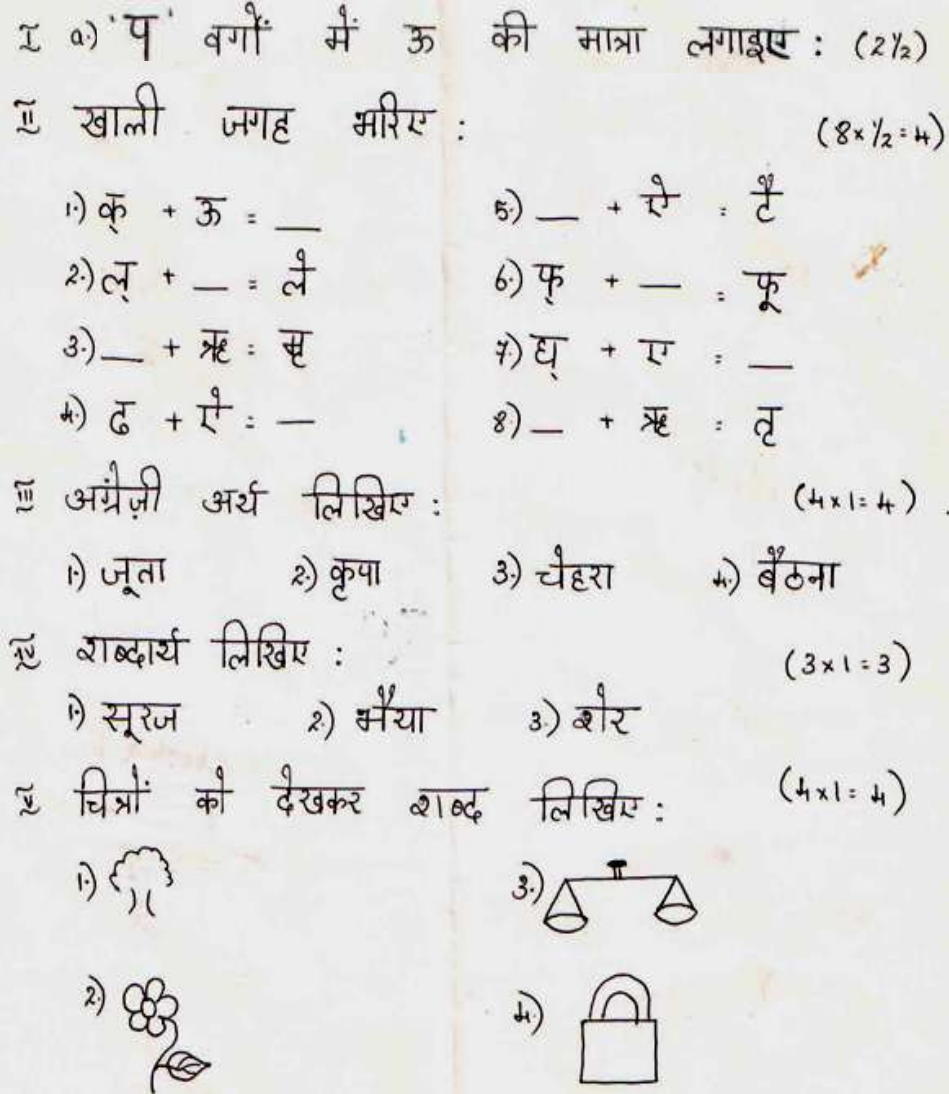 I a.) 'प' वर्गों में ऊ की मात्रा लगाइए : (2½)
II खाली जगह भरिए : (8 × ½ = 4)
1.) क् + ऊ = __ 5.) __ + ऐ = टै
2.) ल् + __ = ले 6.) फ् + __ = फू
3.) __ + ऋ = सृ 7.) घ् + ए = __
4.) ढ + ऐ = __ 8.) __ + ऋ = तृ
III अग्रेंज़ी अर्थ लिखिए : (4 × 1 = 4)
1.) जूता 2.) कृपा 3.) चेहरा 4.) बैठना
IV शब्दार्थ लिखिए : (3 × 1 = 3)
1.) सूरज 2.) भैया 3.) शेर
V चित्रों को देखकर शब्द लिखिए : (4 × 1 = 4)
1.) 3.)
2.) 4.)